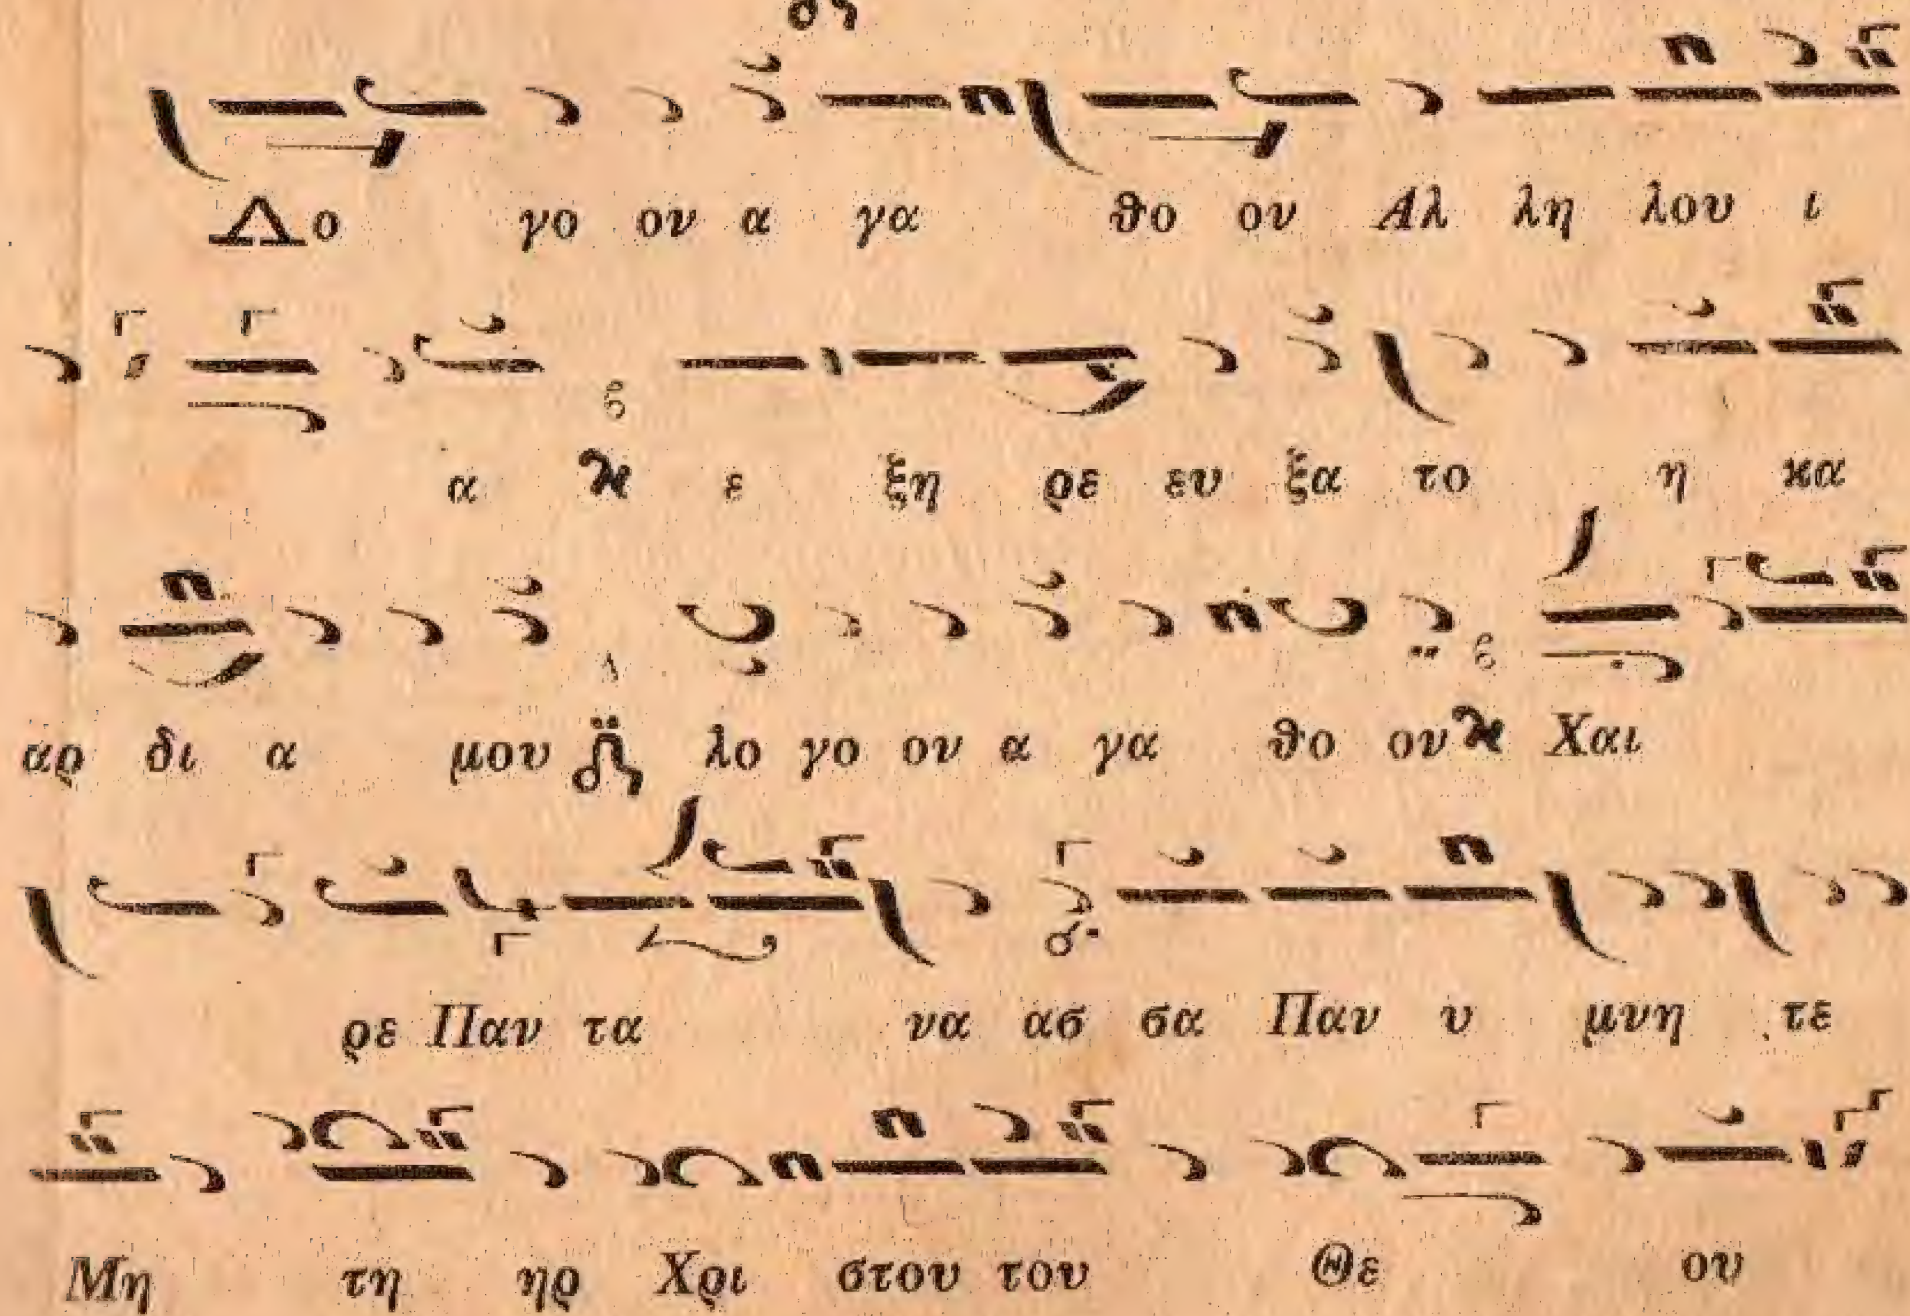 Λο γο ον α γα θο ον Αλ λη λου ι
α ϗ ε ξη ρε ευ ξα το η κα
αρ δι α μου λο γο ον α γα θο ον ϗ Χαι
ρε Παν τα να ασ σα Παν υ μνη τε
Μη τη ηρ Χρι στου του Θε ου